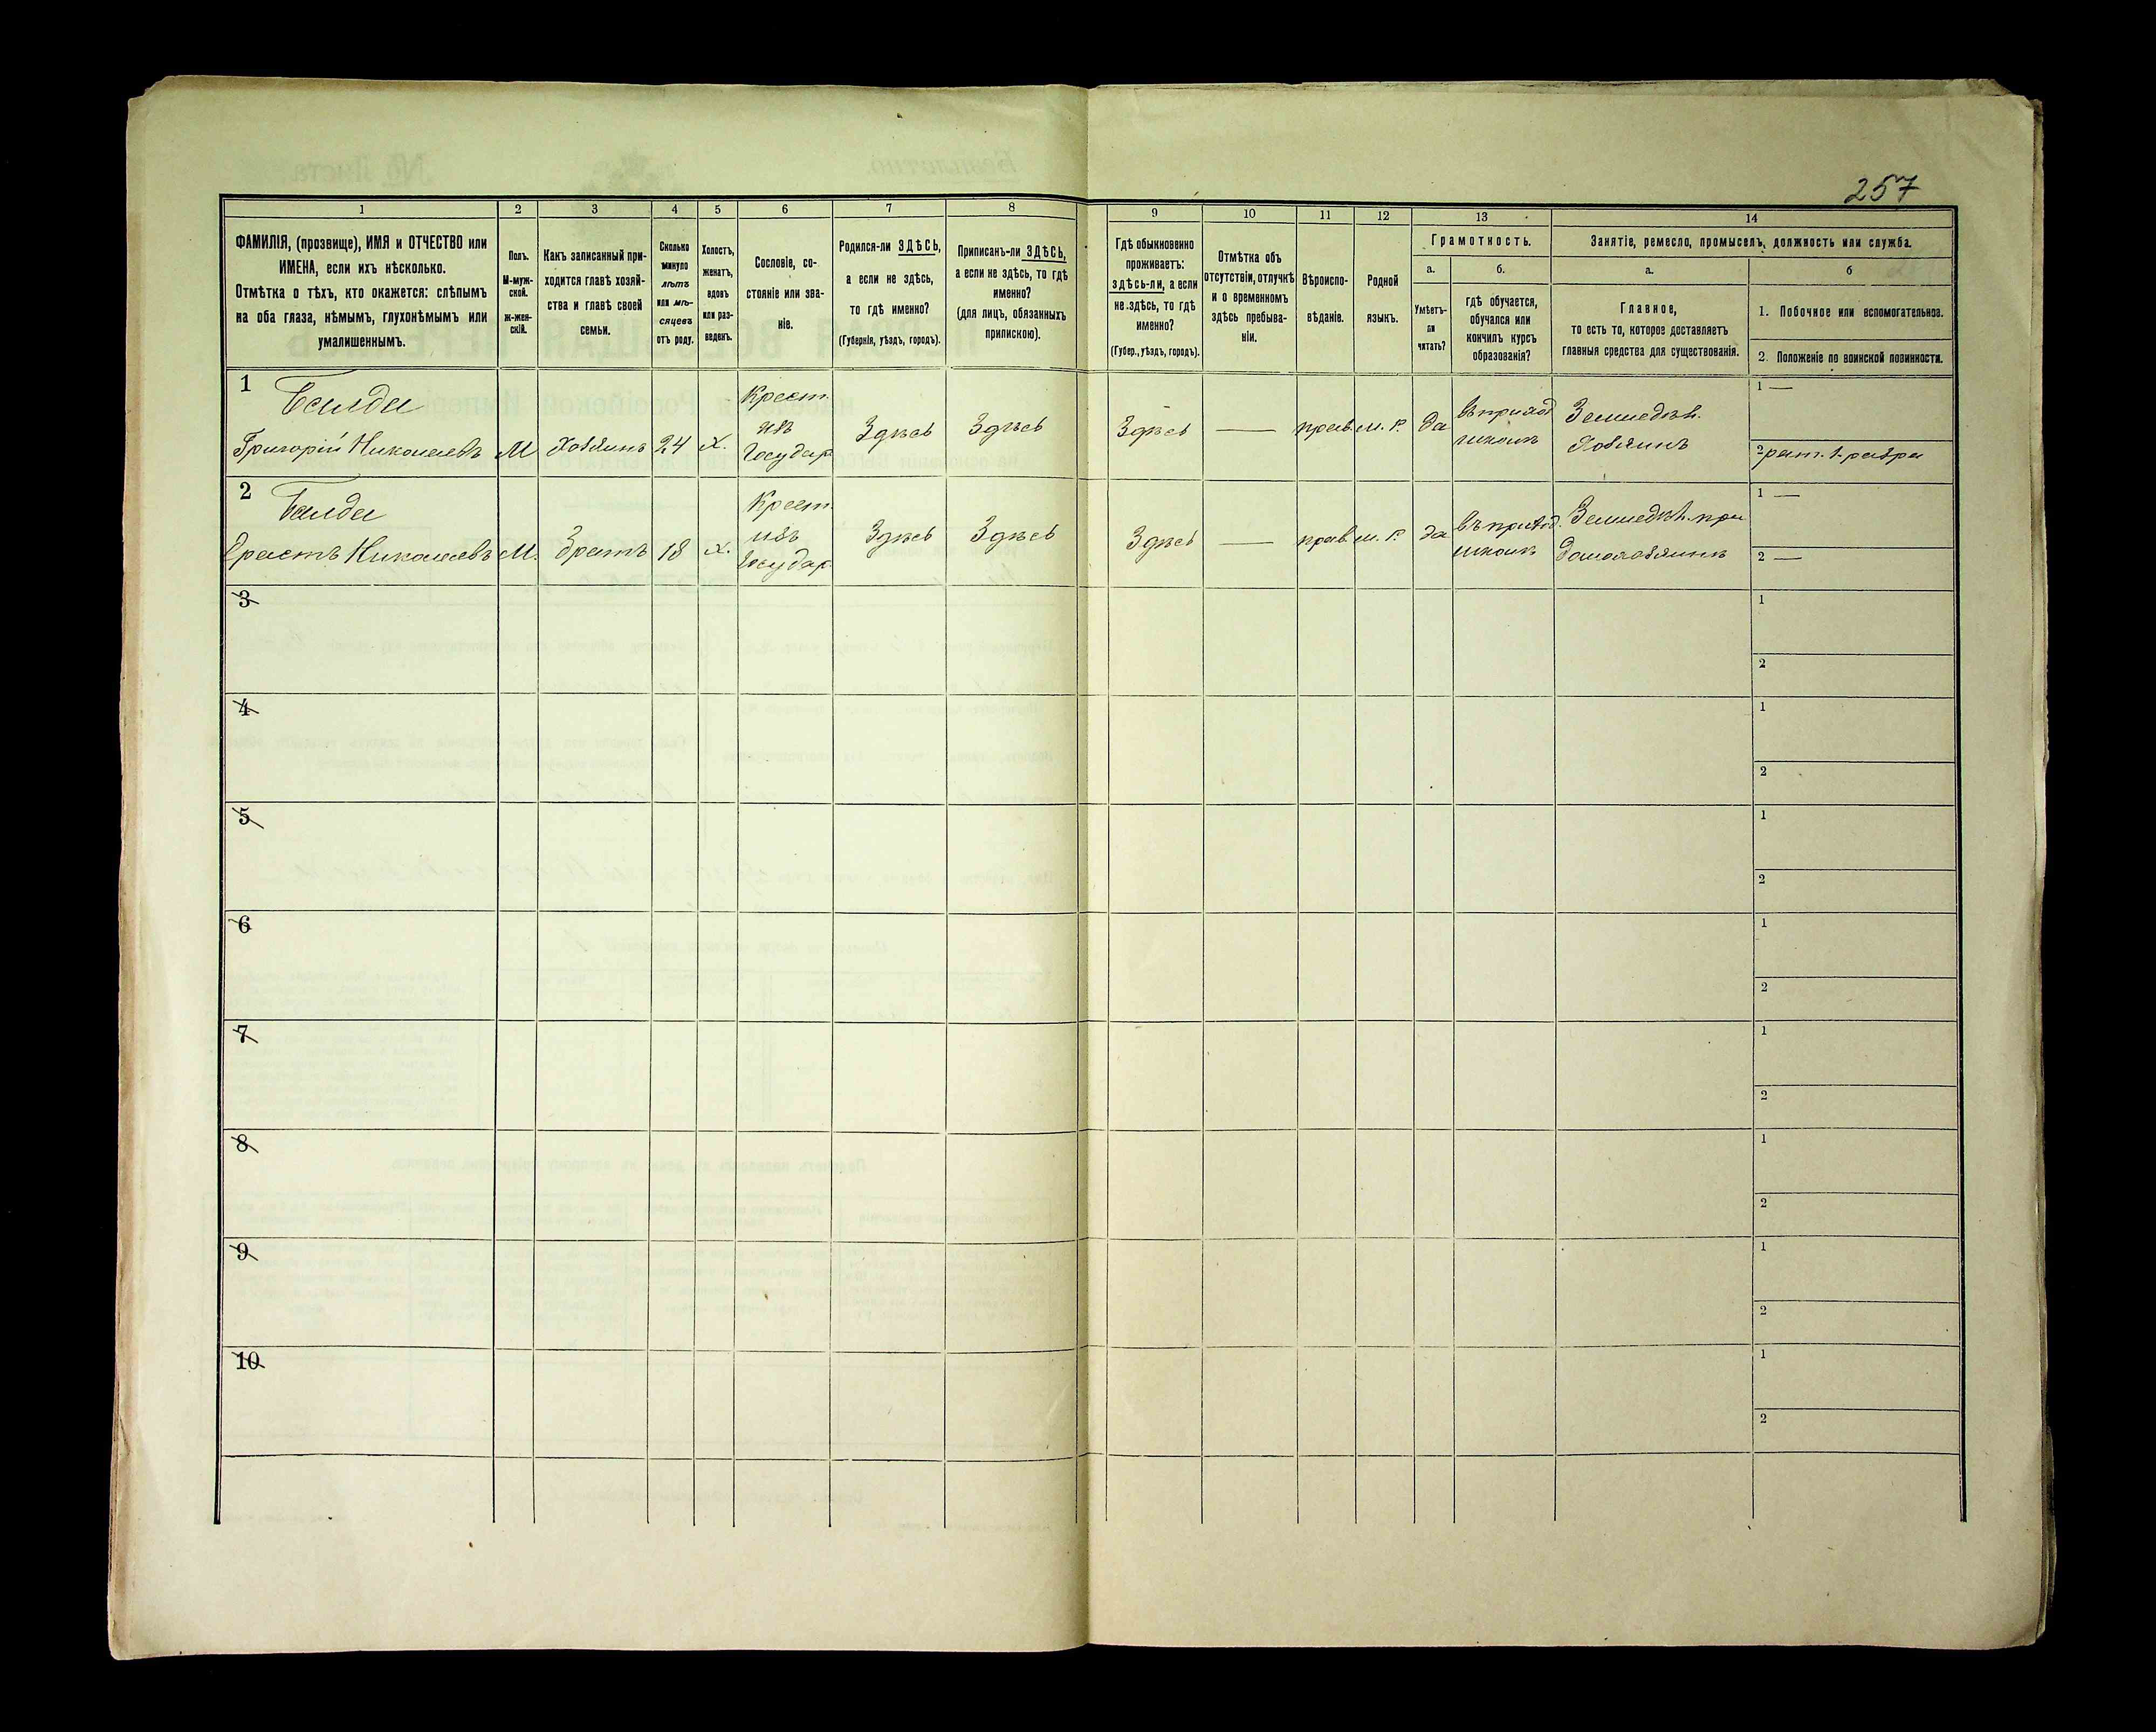 257
1 2 3 4 5 6 7 8 9 10 11 12 13 14
ФАМИЛІЯ, (прозвище), ИМЯ и ОТЧЕСТВО или
ИМЕНА, если ихъ нѣсколько.
Отмѣтка о тѣхъ, кто окажется: слѣпымъ
на оба глаза, нѣмымъ, глухонѣмымъ или
умалишеннымъ.
Полъ.
М-муж-
ской.
ж-жен-
скій.
Какъ записанный при-
ходится главѣ хозяй-
ства и главѣ своей
семьи.
Сколько
минуло
лѣтъ
или мѣ-
сяцевъ
отъ роду.
Холостъ,
женатъ,
вдовъ
или раз-
веденъ.
Сословіе, со-
стояніе или зва-
ніе.
Родился-ли ЗДѢСЬ,
а если не здѣсь,
то гдѣ именно?
(Губернія, уѣздъ, городъ).
Приписанъ-ли ЗДѢСЬ,
а если не здѣсь, то гдѣ
именно?
(для лицъ, обязанныхъ
припискою).
Гдѣ обыкновенно
проживаетъ:
здѣсь-ли, а если
не здѣсь, то гдѣ
именно?
(Губер., уѣздъ, городъ).
Отмѣтка объ
отсутствіи, отлучкѣ
и о временномъ
здѣсь пребыва-
ніи.
Вѣроиспо-
вѣданіе.
Родной
языкъ.
Грамотность.
а.
Умѣетъ-
ли
читать?
б.
гдѣ обучается,
обучался или
кончилъ курсъ
образованія?
Занятіе, ремесло, промыселъ, должность или служба.
а.
Главное,
то есть то, которое доставляетъ
главныя средства для существованія.
б
1. Побочное или вспомогательное.
2. Положеніе по воинской повинности.
1
Балда
Григорій Николаевъ
М
Хозяинъ
24
х.
Крест.
изъ
Государ
Здѣсь
Здѣсь
Здѣсь
—
прав.
м. р.
да
въ приход
школѣ
Земледѣл.
Хозяинъ
1 —
2 рат. 1. разря
2
Балда
Ерастъ Николаевъ
М.
Братъ
18
х.
Крест.
изъ
Государ
Здѣсь
Здѣсь
Здѣсь
—
прав.
м. р.
да
въ приход.
школѣ
Земледѣл. при
домохозяинѣ
1 —
2 —
3
1
2
4
1
2
5
1
2
6
1
2
7
1
2
8
1
2
9
1
2
10
1
2